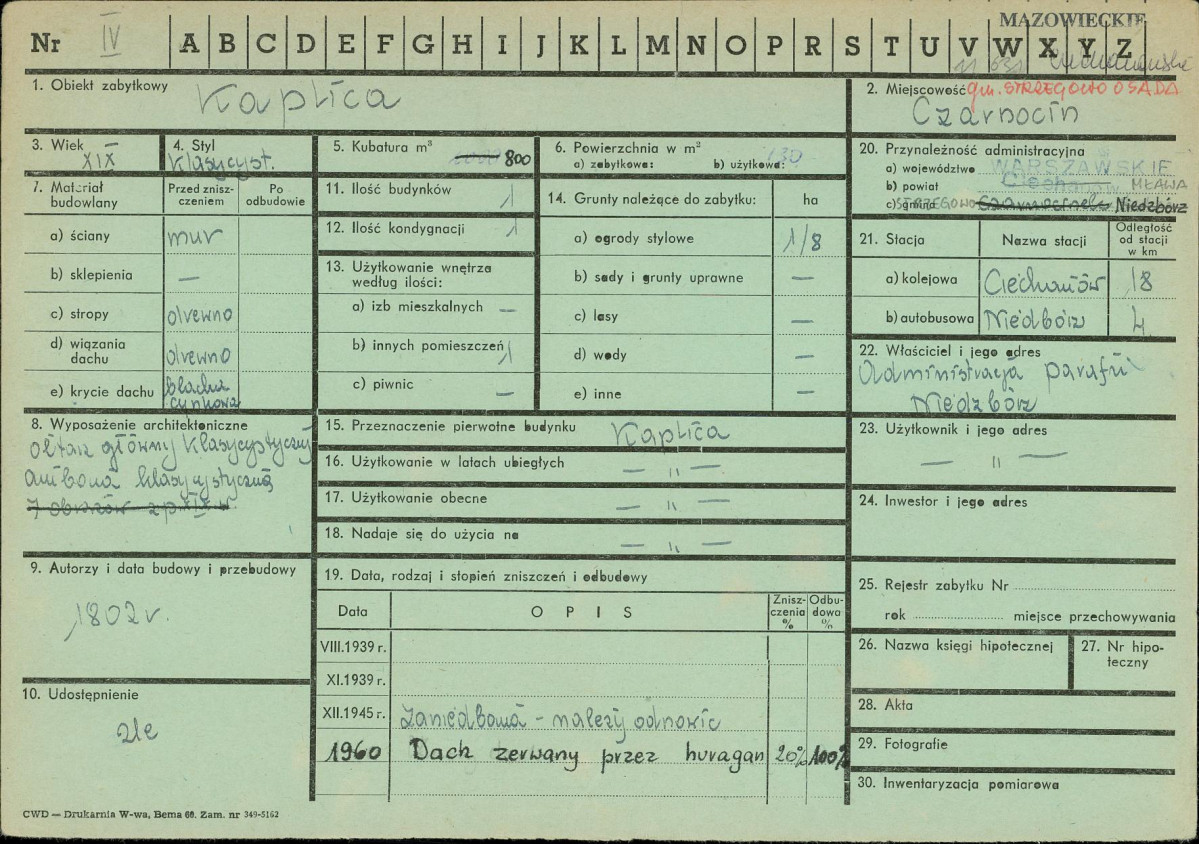 MAZOWIECKIE
Nr IV A B C D E F G H I J K L M N O P R S T U V W X Y Z
1. Obiekt zabytkowy Kaplica
2. Miejscowość gm. STRZEGOWO OSADA
Czarnocin
3. Wiek XIX
4. Styl Klasycyst.
5. Kubatura m³ 800
6. Powierzchnia w m²
a) zabytkowa: b) użytkowa: 130
7. Materiał budowlany
Przed zniszczeniem
Po odbudowie
a) ściany mur
b) sklepienia —
c) stropy drewno
d) wiązania dachu drewno
e) krycie dachu blacha cynkowa
11. Ilość budynków 1
12. Ilość kondygnacji 1
13. Użytkowanie wnętrza według ilości:
a) izb mieszkalnych —
b) innych pomieszczeń 1
c) piwnic —
14. Grunty należące do zabytku: ha
a) ogrody stylowe 1/8
b) sady i grunty uprawne —
c) lasy —
d) wody —
e) inne —
20. Przynależność administracyjna
a) województwo WARSZAWSKIE
b) powiat Ciechanów MŁAWA
c) gmina STRZEGOWO Niedzbórz
21. Stacja
Nazwa stacji
Odległość od stacji w km
a) kolejowa Ciechanów 18
b) autobusowa Niedbórz 4
22. Właściciel i jego adres
Administracja parafii
Niedzbórz
8. Wyposażenie architektoniczne
ołtarz główny klasycystyczny
ambona klasycystyczna
7 obrazów z p XIX w.
15. Przeznaczenie pierwotne budynku Kaplica
16. Użytkowanie w latach ubiegłych — " —
17. Użytkowanie obecne — " —
18. Nadaje się do użycia na — " —
23. Użytkownik i jego adres
— " —
24. Inwestor i jego adres
9. Autorzy i data budowy i przebudowy
1802 r.
10. Udostępnienie
złe
19. Data, rodzaj i stopień zniszczeń i odbudowy
Data
O P I S
Zniszczenia %
Odbudowa %
VIII.1939 r.
XI.1939 r.
XII.1945 r. zaniedbana - należy odnowić
1960 Dach zerwany przez huragan 20% 100%
25. Rejestr zabytku Nr
rok miejsce przechowywania
26. Nazwa księgi hipotecznej
27. Nr hipoteczny
28. Akta
29. Fotografie
30. Inwentaryzacja pomiarowa
CWD — Drukarnia W-wa, Bema 60. Zam. nr 349-5162